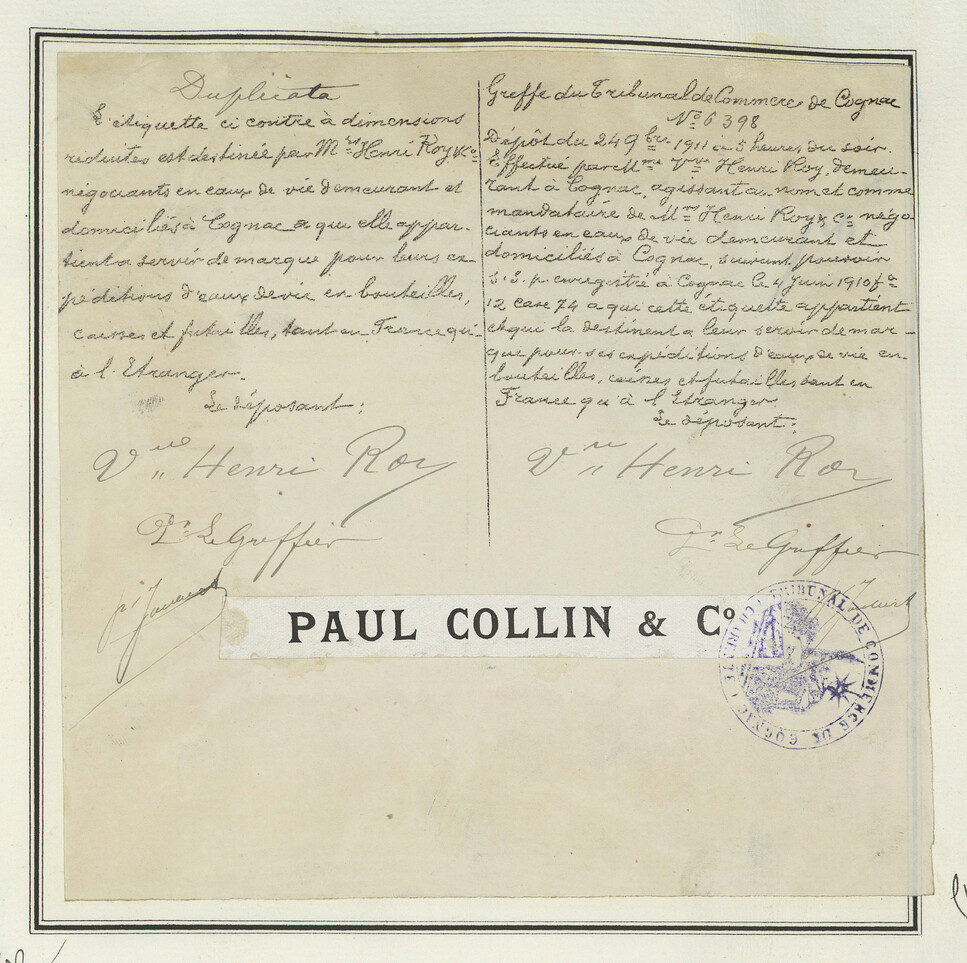 Duplicata
L'étiquette ci contre à dimensions
réduites est destinée par M.rs Henri Roy & Co
négociants en eaux de vie demeurant et
domiciliés à Cognac a qui elle appar-
tient a servir de marque pour leurs ex-
péditions d'eaux de vie en bouteilles,
caisses et futailles, tant en France qu'-
à l'Etranger.
Le déposant:
Vve Henri Roy
Pr Le Greffier
Greffe du Tribunal de Commerce de Cognac
No 6398
Dépôt du 24 9bre 1911 à 5 heures du soir.
Effectué par Mme Vve Henri Roy, demeu-
rant à Cognac, agissant au nom et comme
mandataire de M.rs Henri Roy & Co négo-
ciants en eaux de vie demeurant et
domiciliés à Cognac, suivant pouvoir
s. s. p. enregistré à Cognac le 4 Juin 1910 fo
12 case 74 a qui cette étiquette appartient
et qui la destinent a leur servir de mar-
que pour ses expéditions d'eaux de vie en-
bouteilles, caisses et futailles tant en
France qu'à l'Etranger.
Le déposant:
Vve Henri Roy
Pr Le Greffier
PAUL COLLIN & Co
TRIBUNAL DE COMMERCE DE COGNAC